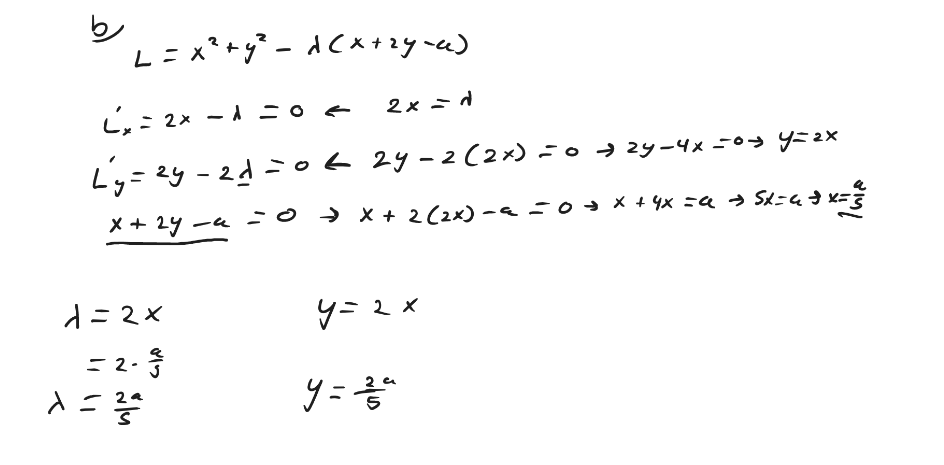 b
L = x² + y² - λ(x + 2y - a)
L'ₓ = 2x - λ = 0 ← 2x = λ
L'y = 2y - 2λ = 0 ← 2y - 2(2x) = 0 → 2y - 4x = 0 → y = 2x
x + 2y - a = 0 → x + 2(2x) - a = 0 → x + 4x = a → 5x = a → x = a/5
λ = 2x y = 2x
= 2 · a/5
λ = 2a/5 y = 2a/5